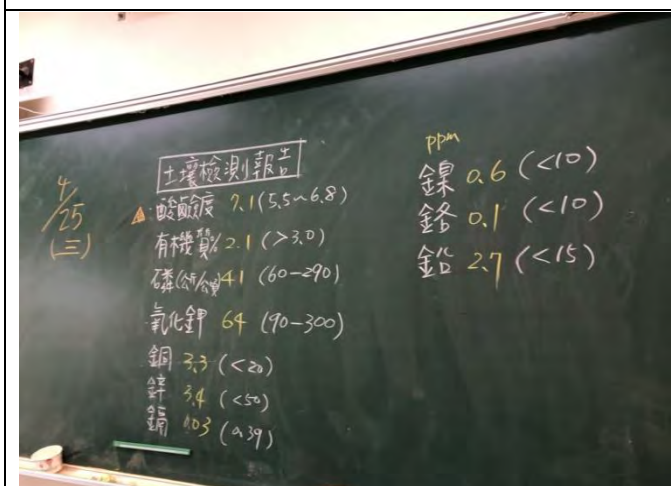 4/25
(三)
土壤檢測報告
酸鹼度 7.1 (5.5~6.8)
有機質% 2.1 (>3.0)
磷(公斤/公頃) 41 (60-290)
氧化鉀 64 (90-300)
銅 3.3 (<20)
鋅 3.4 (<50)
鎘 0.03 (0.39)
ppm
鎳 0.6 (<10)
鉻 0.1 (<10)
鉛 2.7 (<15)